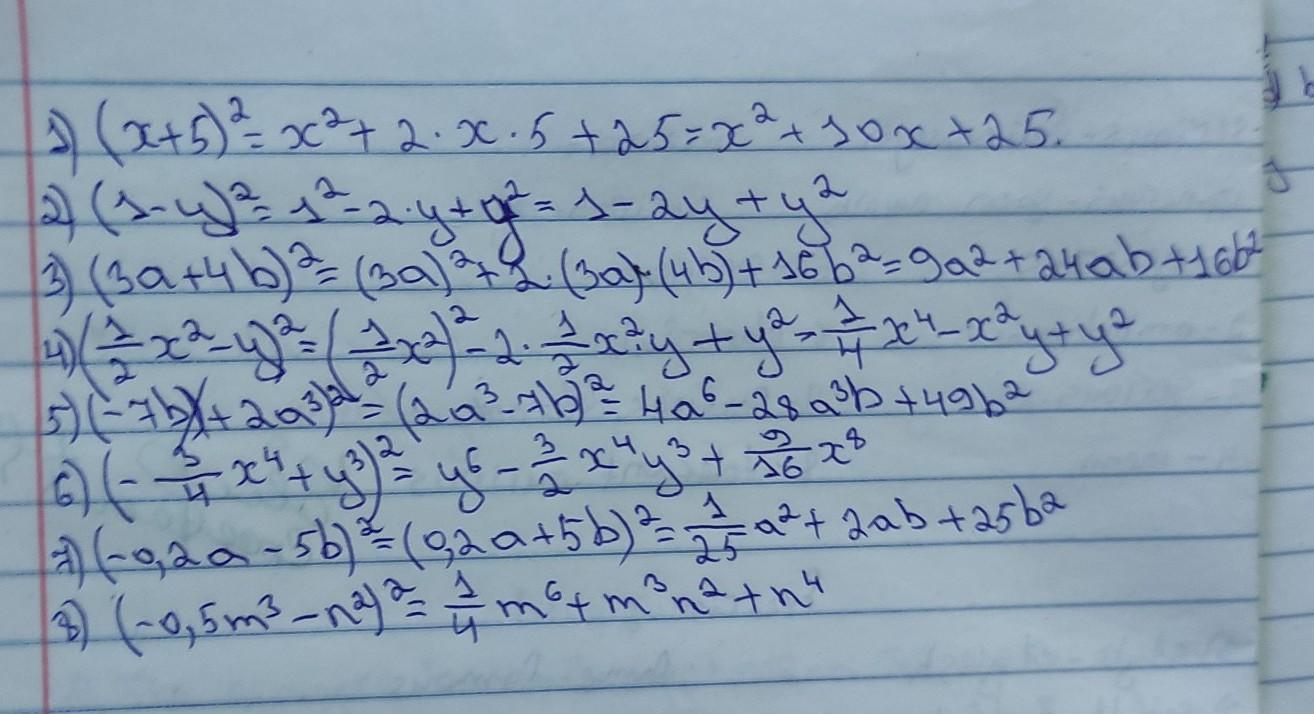 1) (x+5)² = x² + 2·x·5 + 25 = x² + 10x + 25.
2) (1-y)² = 1² - 2·y + y² = 1 - 2y + y²
3) (3a+4b)² = (3a)² + 2·(3a)·(4b) + 16b² = 9a² + 24ab + 16b²
4) (1/2 x² - y)² = (1/2 x²)² - 2·1/2 x²·y + y² = 1/4 x⁴ - x²y + y²
5) (-7b + 2a³)² = (2a³ - 7b)² = 4a⁶ - 28a³b + 49b²
6) (-3/4 x⁴ + y³)² = y⁶ - 3/2 x⁴y³ + 9/16 x⁸
7) (-0,2a - 5b)² = (0,2a + 5b)² = 1/25 a² + 2ab + 25b²
8) (-0,5m³ - n²)² = 1/4 m⁶ + m³n² + n⁴